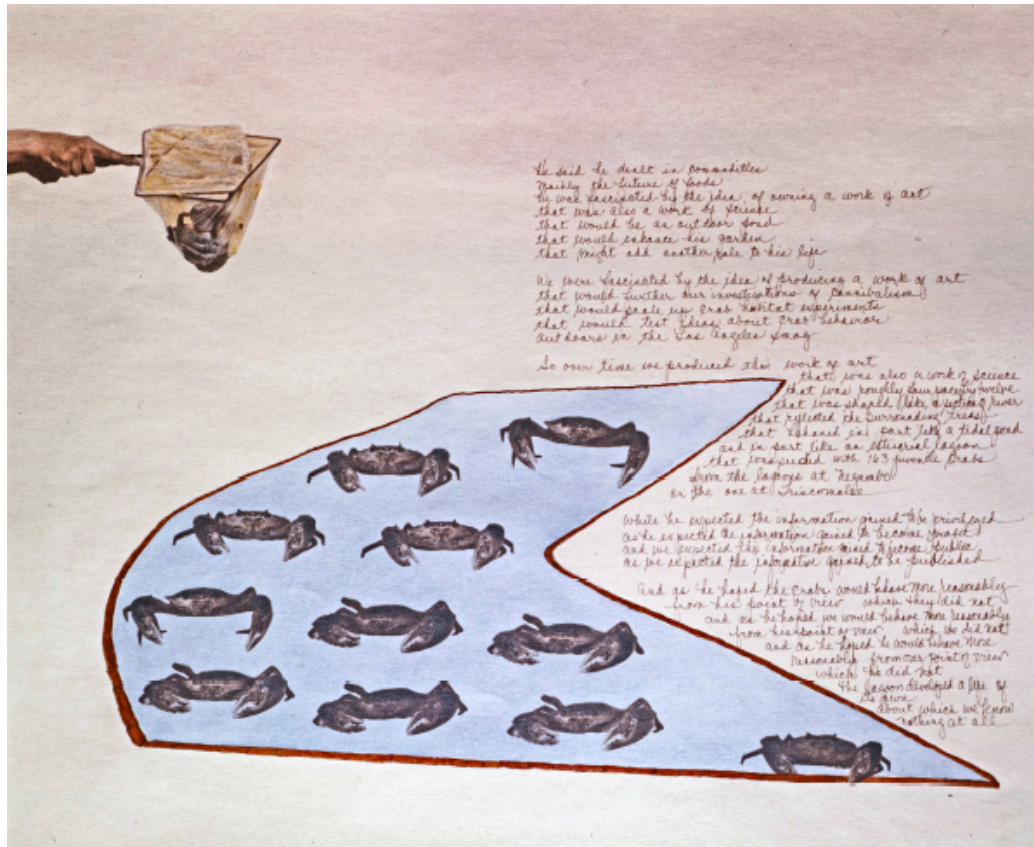 He said he dealt in commodities
mainly the future of foods
he was fascinated by the idea of owning a work of art
that was also a work of science
that would be an outdoor pond
that would enhance his garden
that might add another pole to his life
We were fascinated by the idea of producing a work of art
that would further our investigations of cannibalism
that would scale up crab habitat experiments
that would test ideas about crab behavior
outdoors in the Los Angeles smog
So over time we produced this work of art
that was also a work of science
that was roughly four by twelve
that was shaped like a section of river
that reflected the surrounding trees
that behaved in part like a tidal pond
and in part like an estuarial lagoon
that was seeded with 163 juvenile crabs
from the lagoons at Negombo
or the one at Trincomalee
While he expected the information gained to be privileged
as he expected the information gained to become
and we expected the information gained to become public
as we expected the information gained to be published
And as he hoped the crabs would behave more reasonably
from his point of view which they did not
and as he hoped we would behave more reasonably
from his point of view which we did not
and as we hoped he would behave more
reasonably from our point of view
which he did not
the lagoon developed a life of
its own
about which we know
nothing at all